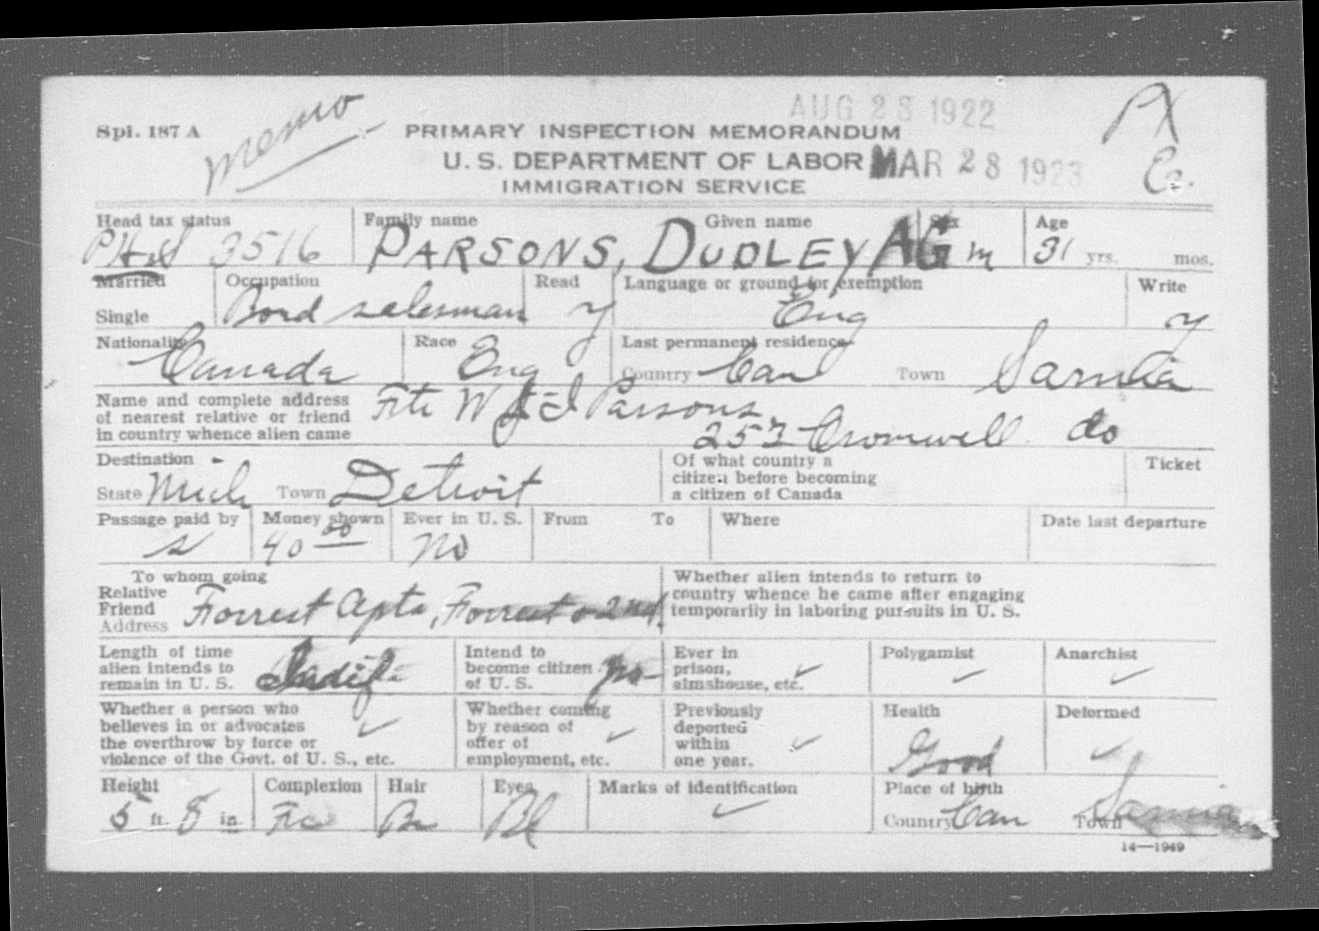 AUG 23 1922
Spl. 187 A
memo
PRIMARY INSPECTION MEMORANDUM
U. S. DEPARTMENT OF LABOR MAR 28 1923
IMMIGRATION SERVICE
Head tax status Family name Given name Sex Age
3516 PARSONS, DUDLEY AG m 31 yrs. mos.
Married Occupation Read Language or ground for exemption Write
Single salesman y Eng y
Nationality Race Last permanent residence
Canada Eng Country Can Town Sarnia
Name and complete address
of nearest relative or friend
in country whence alien came
Parsons
Cromwell do
Destination Of what country a Ticket
citizen before becoming
State Mich Town Detroit a citizen of Canada
Passage paid by Money shown Ever in U. S. From To Where Date last departure
s 40 00 no
To whom going Whether alien intends to return to
Relative country whence he came after engaging
Friend Forrest Apts, Forrest & 2nd temporarily in laboring pursuits in U. S.
Address
Length of time Intend to Ever in Polygamist Anarchist
alien intends to become citizen prison,
remain in U. S. Indif of U. S. no almshouse, etc.
Whether a person who Whether coming Previously Health Deformed
believes in or advocates by reason of deported
the overthrow by force or offer of within
violence of the Govt. of U. S., etc. employment, etc. one year. Good
Height Complexion Hair Eyes Marks of identification Place of birth
5 ft. 8 in. Br Bl Country Can Town Sarnia
14—1949